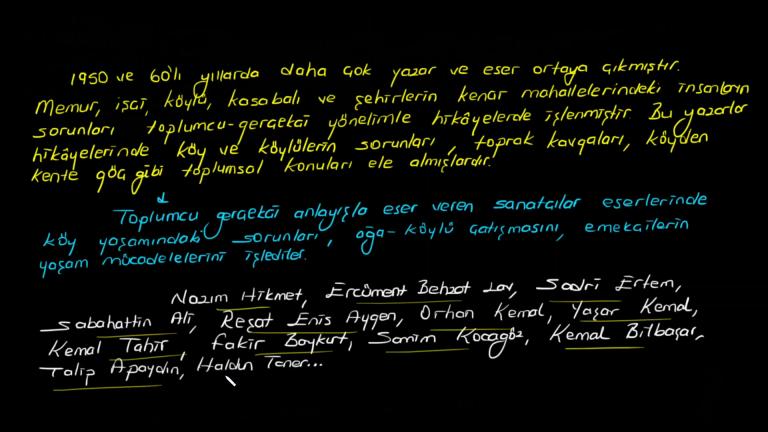 1950 ve 60'lı yıllarda daha çok yazar ve eser ortaya çıkmıştır.
Memur, işçi, köylü, kasabalı ve şehirlerin kenar mahallelerindeki insanların
sorunları toplumcu-gerçekçi yönelimle hikâyelerde işlenmiştir. Bu yazarlar
hikâyelerinde köy ve köylülerin sorunları, toprak kavgaları, köyden
kente göç gibi toplumsal konuları ele almışlardır.
Toplumcu gerçekçi anlayışla eser veren sanatçılar eserlerinde
köy yaşamındaki sorunları, ağa-köylü çatışmasını, emekçilerin
yaşam mücadelelerini işlediler.
Nazım Hikmet, Ercüment Behzat Lav, Sadri Ertem,
Sabahattin Ali, Reşat Enis Aygen, Orhan Kemal, Yaşar Kemal,
Kemal Tahir, Fakir Baykurt, Samim Kocagöz, Kemal Bilbaşar,
Talip Apaydın, Haldun Taner...